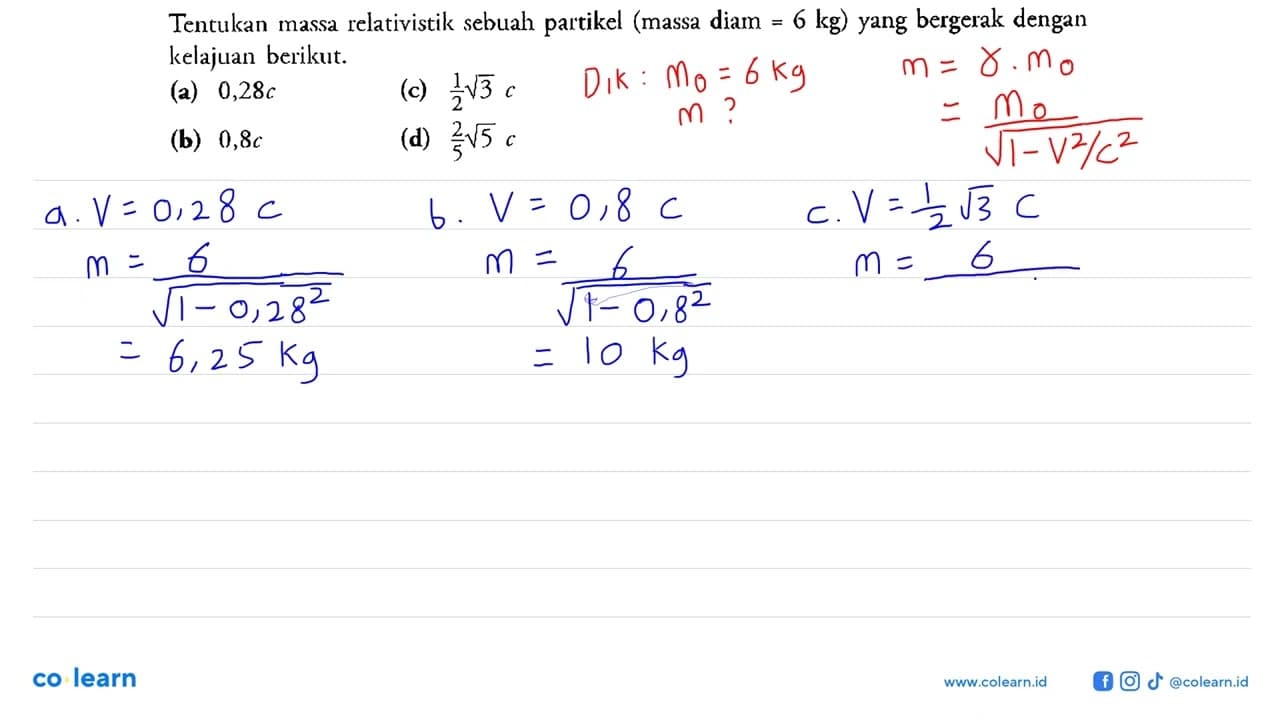 Tentukan massa relativistik sebuah partikel (massa diam = 6 kg) yang bergerak dengan
kelajuan berikut.
(a) 0,28c
(c) 1/2 √3 c
(b) 0,8c
(d) 2/5 √5 c
Dık : m₀ = 6 kg
m ?
m = γ . m₀
= m₀ / √1 - V²/c²
a. V = 0,28 c
m = 6 / √1 - 0,28²
= 6,25 kg
b. V = 0,8 c
m = 6 / √1 - 0,8²
= 10 kg
c. V = 1/2 √3 c
m = 6
co learn
www.colearn.id
@colearn.id